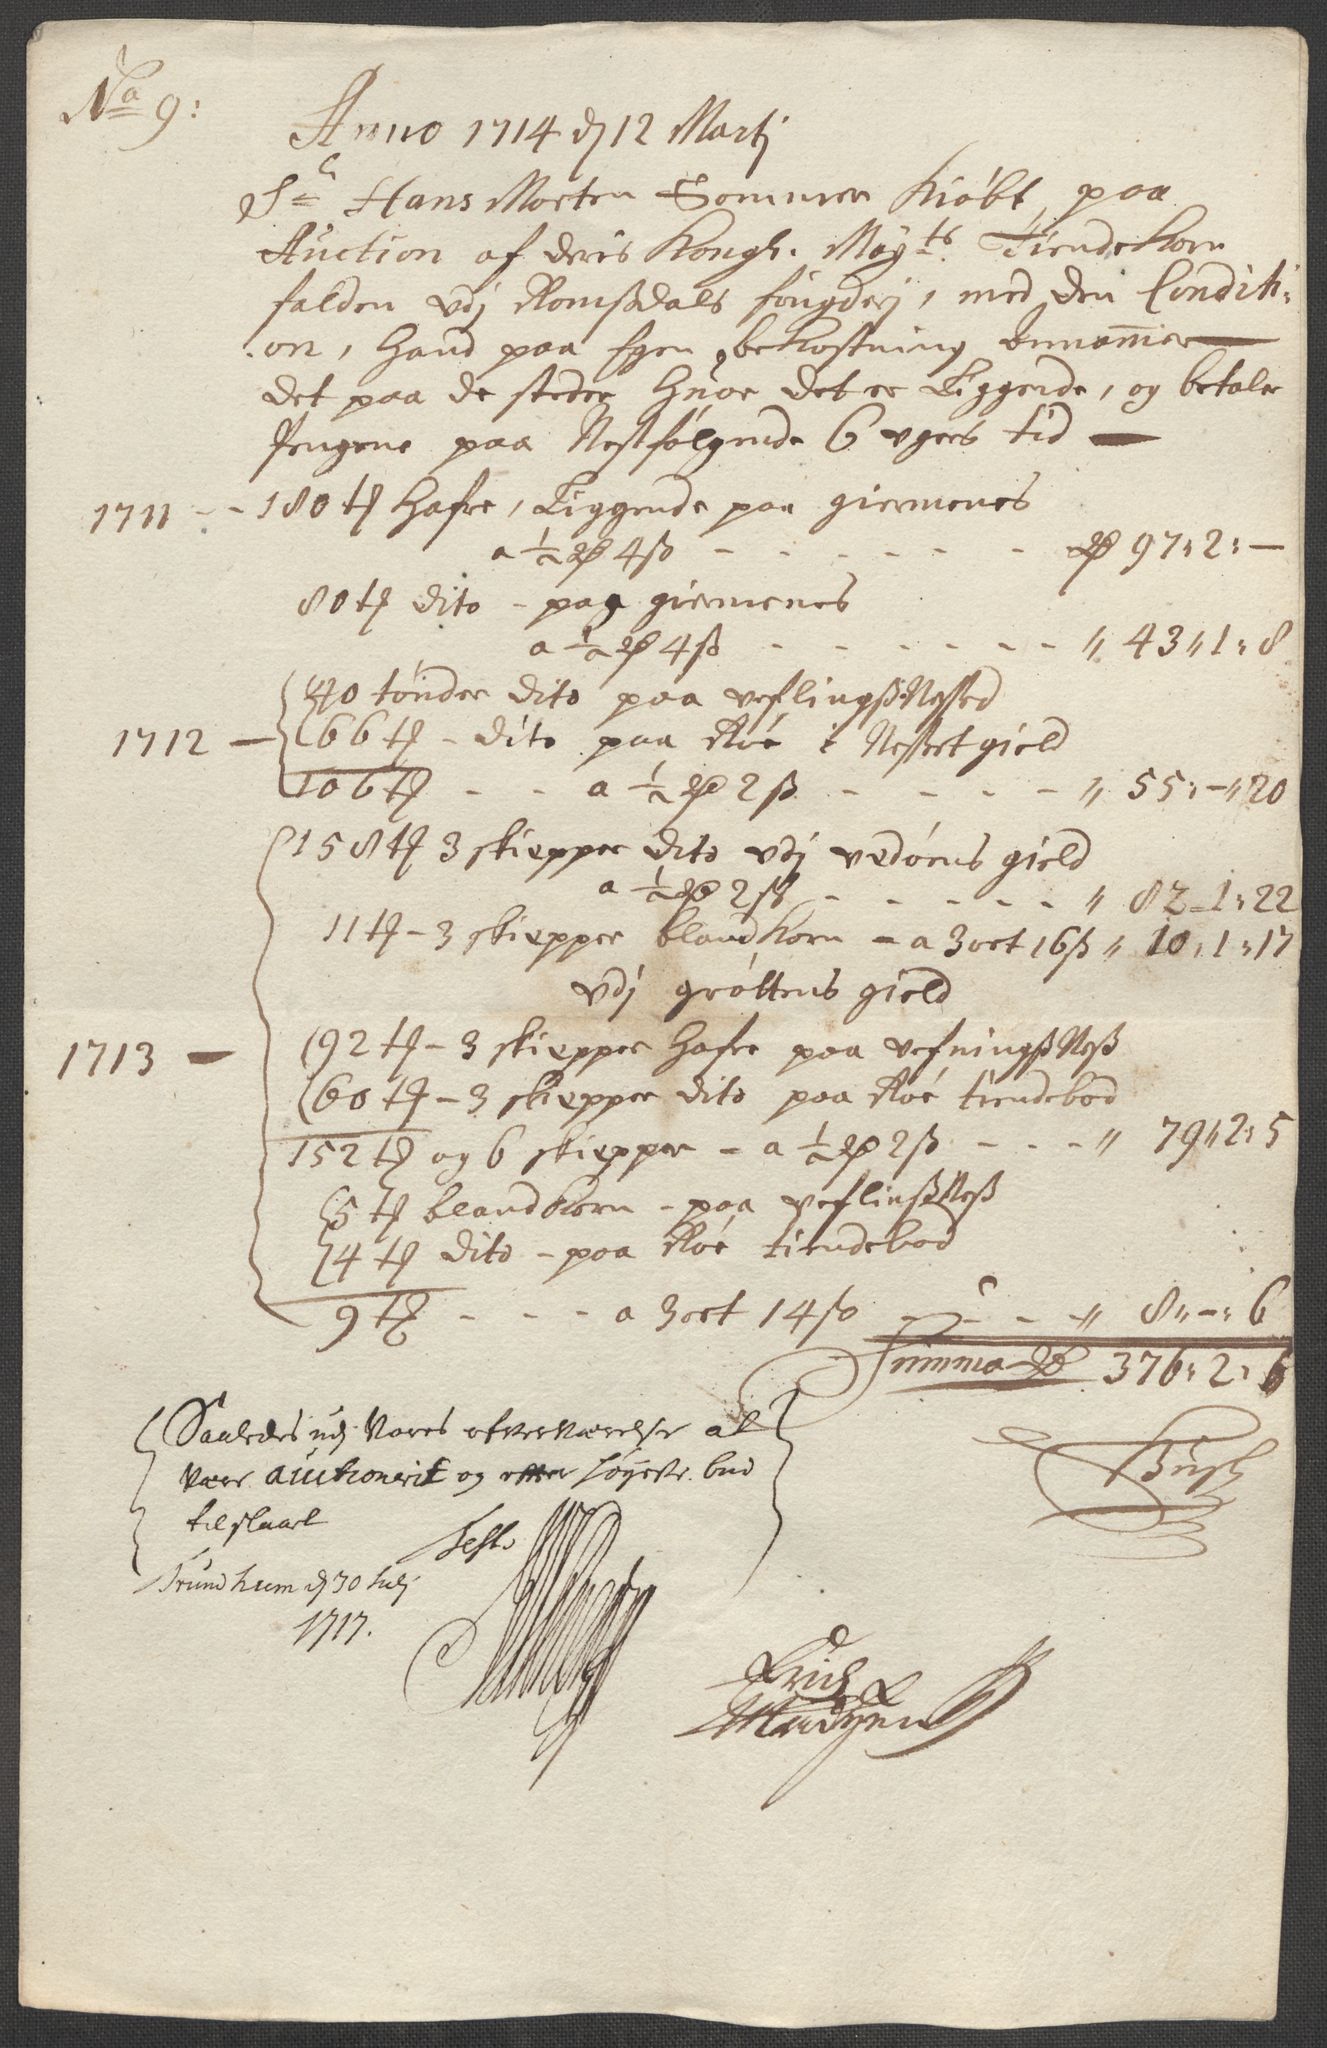 No 9:
Anno 1714 d 12 Martj
Sr Hans Morten Sommer Kiøbt paa
Auction af deris Kongl. Mayts Tiendekorn
falden udj Romsdals fougderj, med den Conditi-
on, hand paa Egen bekostning annammer
det paa de steder huor det er Liggende, og betaler
Pengene paa Nestfølgende 6 ugers tid
1711 - 180 td hafre, Liggende paa giermenes
a ½ rd 4 ß - - - rd 97: 2: -
80 td dito - paa giermenes
a ½ rd 4 ß - - - " 43 " 1: 8
40 tønder dito paa veflingsNessed
1712 - 66 td - dito paa Røe i Nesset gield
106 td - - a ½ rd 2 ß - - - " 55: - " 20
158 td 3 skiepper dito udj vedøens gield
a ½ rd 2 ß - - - " 82 - 1: 22
11 td - 3 skiepper blandkorn - a 3 ort 16 ß " 10: 1: 17
udj grøttens gield
1713 - 92 td - 3 skiepper hafre paa vefningsNess
60 td - 3 skiepper dito paa Røe tiendebod
152 td og 6 skiepper - a ½ rd 2 ß - - - " 79 " 2: 5
5 td blandkorn - paa veflinsNess
4 td dito - paa Røe tiendebod
9 td - - - a 3 ort 14 ß - - - " 8 " -: 6
Summa rd 376: 2: 6
Saaledes udj Vores ofververelse at
være auctionerit og efter høyeste bud
tilslaaet
Test.
Trundhiem d 30 Julj
1717.
Erich
Madsen